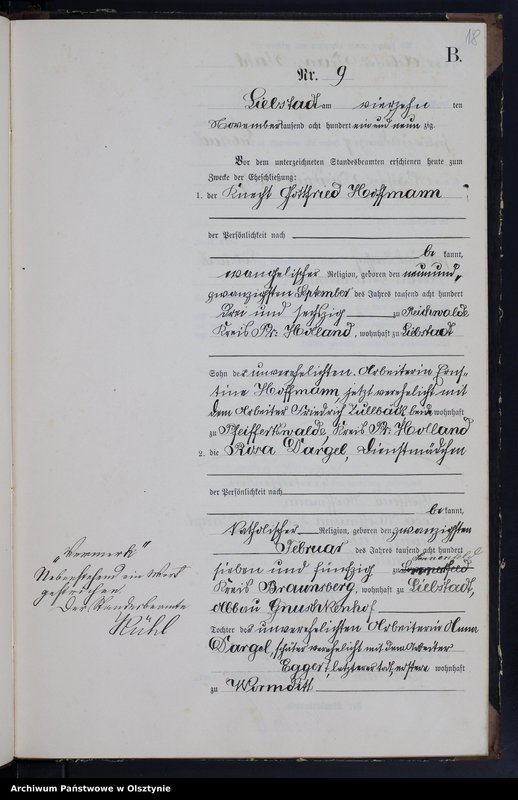 18
B.
Nr. 9
Liebstadt am vierzehn ten
November tausend acht hundert ein und neun zig.
Vor dem unterzeichneten Standesbeamten erschienen heute zum
Zwecke der Eheschließung:
1. der Knecht Gottfried Hoffmann
der Persönlichkeit nach
be kannt,
evangelischer Religion, geboren den neunund
zwanzigsten September des Jahres tausend acht hundert
drei und sechszig zu Reichwalde
Kreis Pr. Holland, wohnhaft zu Liebstadt
Sohn der unverehelichten Arbeiterin Erns-
tine Hoffmann, jetzt verehelicht mit
dem Arbeiter Friedrich beide wohnhaft
zu Pfeiffertswalde, Kreis Pr. Holland
2. die Rosa Dargel, Dienstmädchen
der Persönlichkeit nach
be kannt,
katholischer Religion, geboren den zwanzigsten
Februar des Jahres tausend acht hundert
sieben und fünfzig zu
Kreis Braunsberg, wohnhaft zu Liebstadt,
Abbau
Tochter der unverehelichten Arbeiterin Anna
Dargel, später verehelicht mit dem Arbeiter
Eggert, letzterer todt, erstere wohnhaft
zu Wormditt
"Vermerk"
Nebenstehend ein Wort
gestrichen.
Der Standesbeamte
Kühl
Archiwum Państwowe w Olsztynie